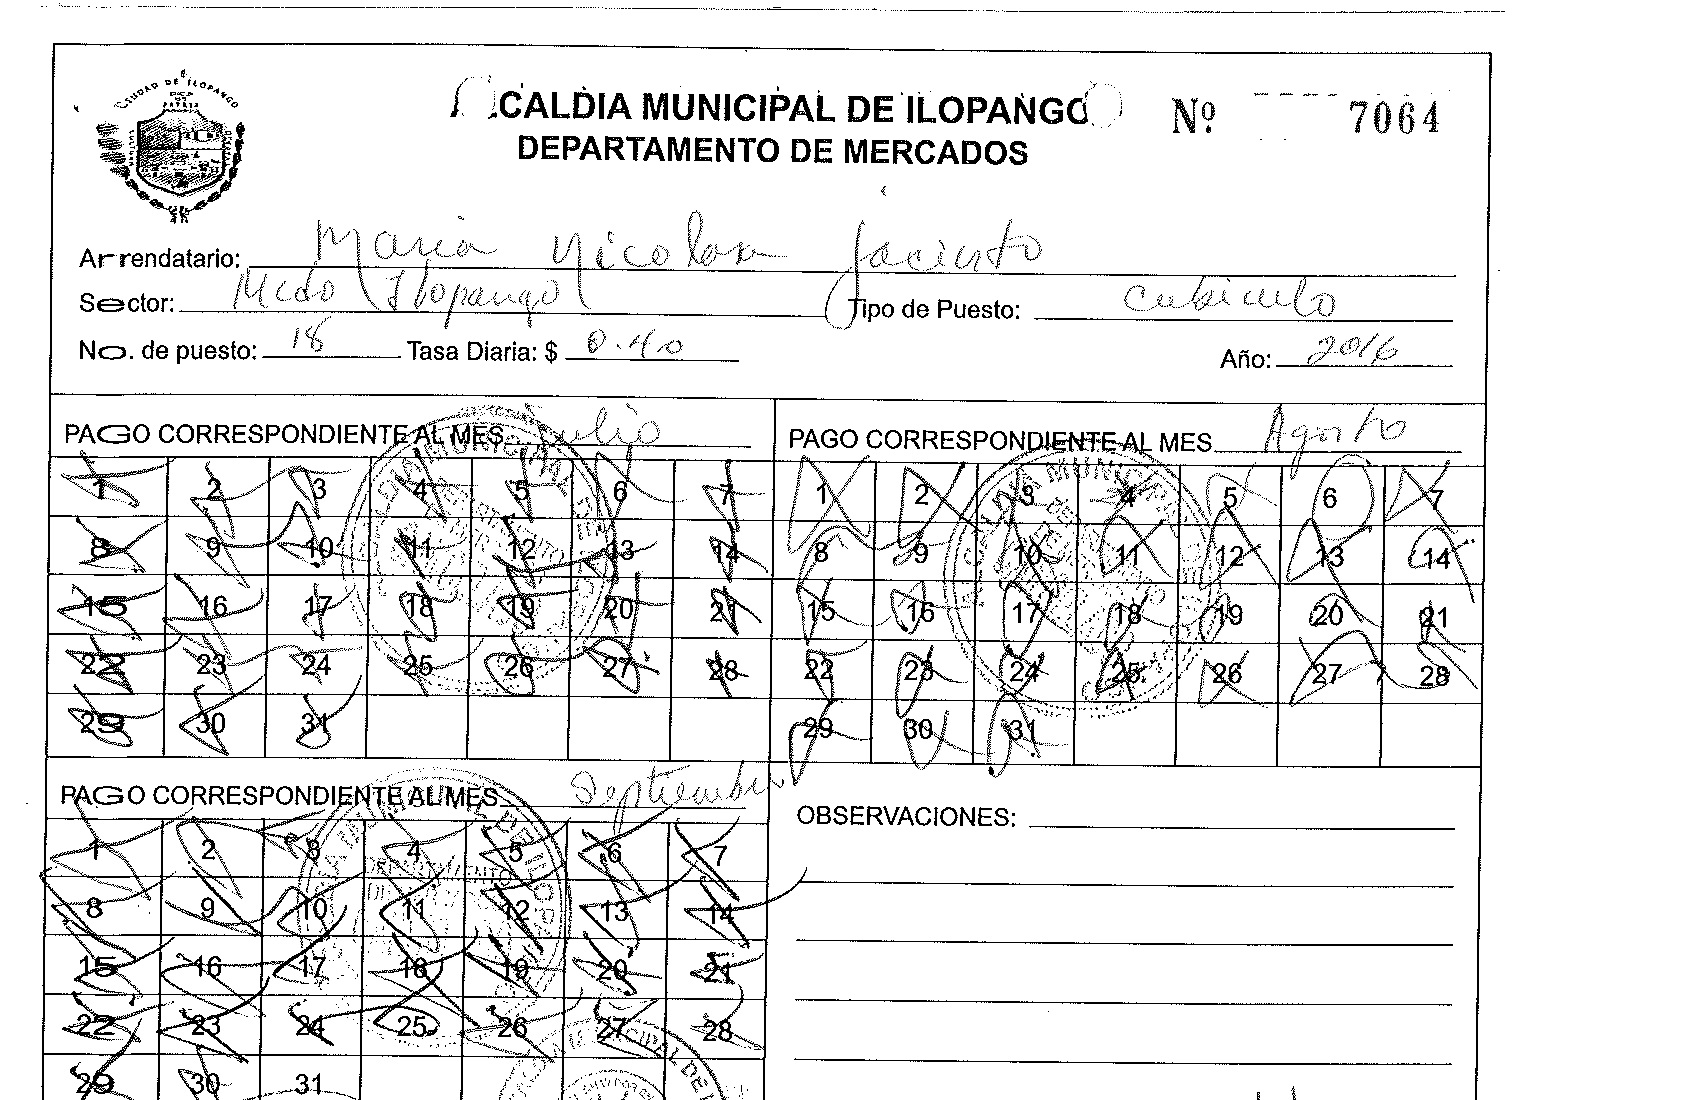 CIUDAD DE ILOPANGO
CALDIA MUNICIPAL DE ILOPANGO
Nº 7064
DEPARTAMENTO DE MERCADOS
Arrendatario: Maria Nicolasa Jacinto
Sector: Mcdo Ilopango Tipo de Puesto: cubiculo
No. de puesto: 18 Tasa Diaria: $ 0.40 Año: 2016
PAGO CORRESPONDIENTE AL MES Julio
1 2 3 4 5 6 7
8 9 10 11 12 13 14
15 16 17 18 19 20 21
22 23 24 25 26 27 28
29 30 31
PAGO CORRESPONDIENTE AL MES Agosto
1 2 3 4 5 6 7
8 9 10 11 12 13 14
15 16 17 18 19 20 21
22 23 24 25 26 27 28
29 30 31
PAGO CORRESPONDIENTE AL MES Septiembre
1 2 3 4 5 6 7
8 9 10 11 12 13 14
15 16 17 18 19 20 21
22 23 24 25 26 27 28
29 30 31
OBSERVACIONES: